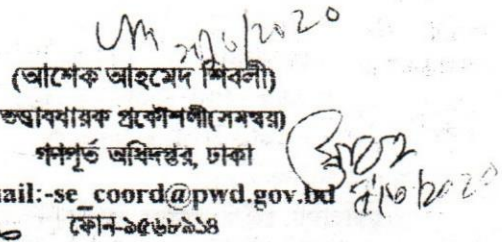 ২১/৬/2020
(আশেক আহমেদ শিবলী)
তত্ত্বাবধায়ক প্রকৌশলী(সমন্বয়)
গণপূর্ত অধিদপ্তর, ঢাকা
ail:-se_coord@pwd.gov.bd
ফোন-৯৫৬৮৯১৪